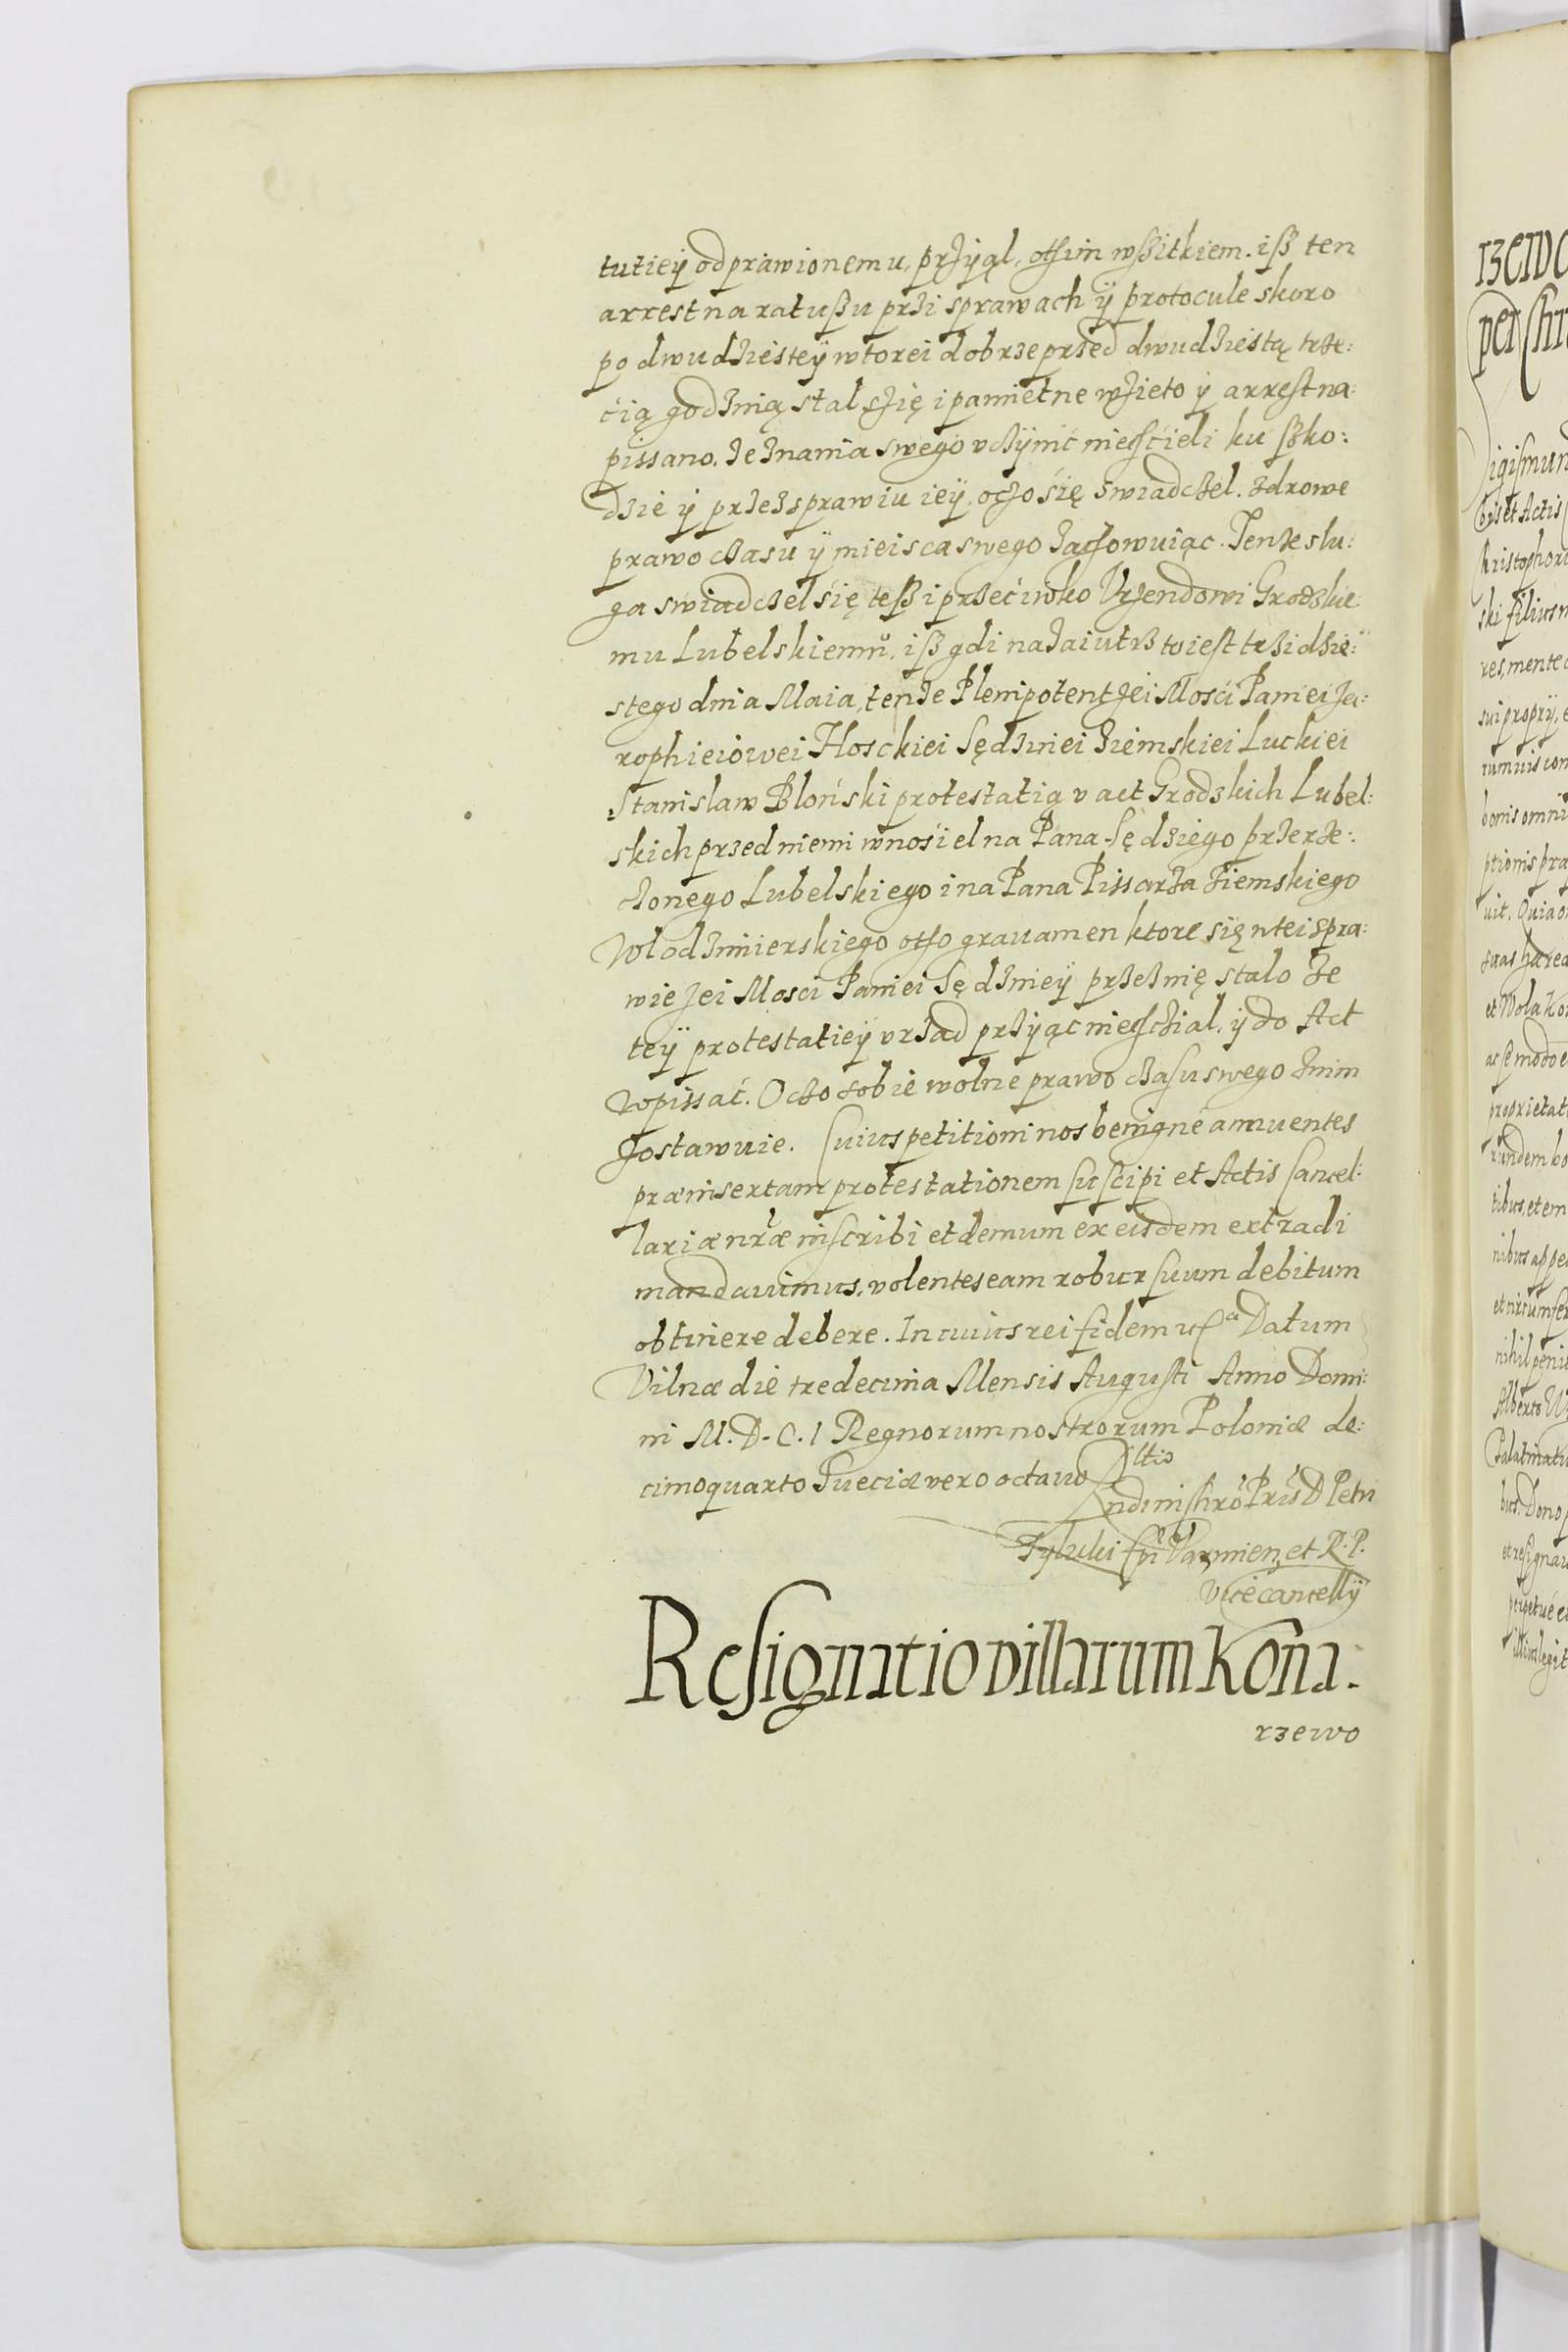 tutieÿ odprawionemu, przÿąl, otszim wszitkiem. isz ten
arrest na ratuszu przi sprawach ÿ protocule skoro
po dwudziesteÿ wtorei dobrze przed dwudziestą trze:
cią godzinią stal szię i pamietne wzieto ÿ arrest na:
pissano. Zeznania swego vczÿnić niechcieli ku szko:
dzie ÿ przezsprawiu ieÿ, oczo się swiadczel. zdrowe
prawo czasu ÿ mieisca swego zachowuiąc. Tenze slu:
ga swiadczel się tesz i przeciwko Vrzendowi Grodzkie
mu Lubelskiemu, isz gdi nazaiutrz to iest trzidzie:
stego dnia Maia, tenze Plenipotent Jei Mosci Paniei Ja:
rophieiowei Hosckiei Sędziniei Ziemskiei Luckiei
Stanislaw Bloński protestatią v act Grodzkich Lubel:
skich przed niemi wnosiel na Pana Sędziego przerze:
czonego Lubelskiego i na Pana Pissarza Ziemskiego
Wlodzimierskiego otso grauamen ktore się wtei spra:
wie Jei Mosci Paniei Sędzinieÿ przeznię stalo Ze
teÿ protestatieÿ vrząd przÿąc niechczial, ÿ do Act
wpissać. Oczo sobie wolne prawo czasu swego znim
zostawuie. Cuius petitioni nos benigne annuentes
præinsertam protestationem suscipi et Actis Cancel:
lariæ nr̃æ inscribi et demum ex eisdem extradi
mandauimus, volentes eam robur suum debitum
obtinere debere. In cuius rei fidem etc. Datum
Vilnæ die tredecima Mensis Augusti Anno Domi:
ni M.D.C.I Regnorum nostrorum Poloniæ de:
cimoquarto Sueciæ vero octauo
Petri
Tylicki Epi Varmien, et R. P.
Vicecancellÿ
Resignatio villarum Kona.
rzewo